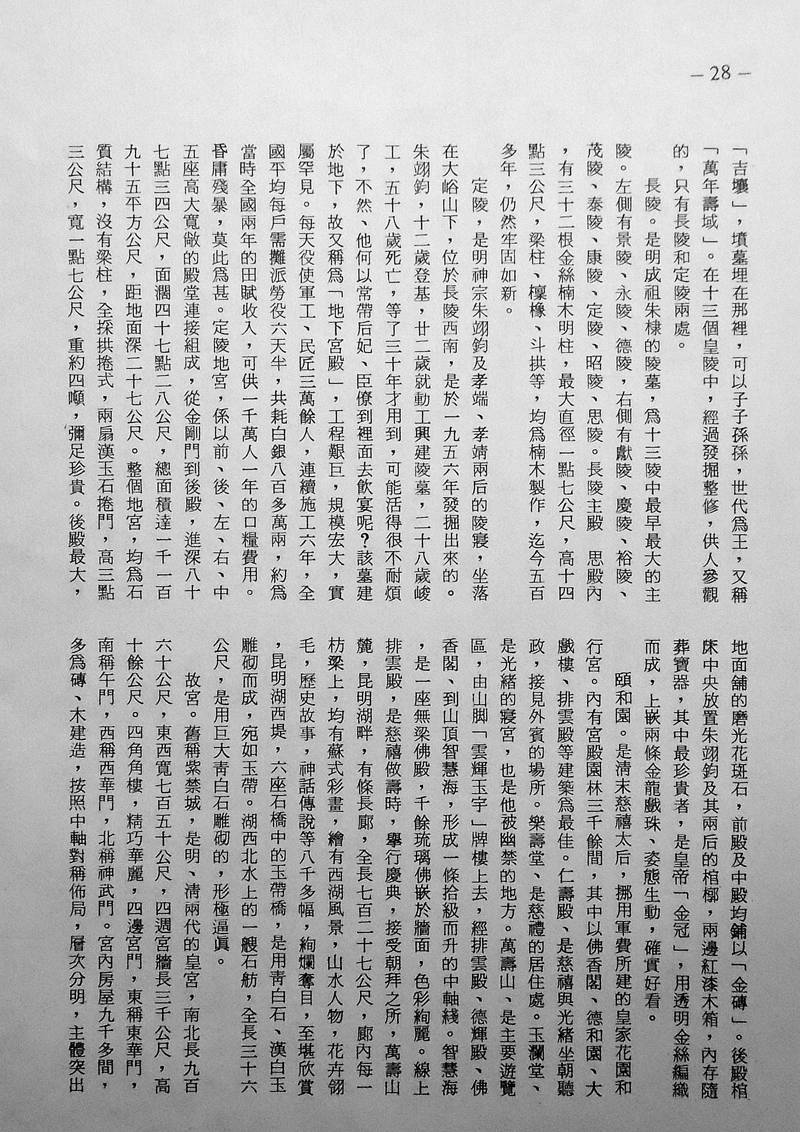 －28－
「吉壤」，墳墓埋在那裡，可以子子孫孫，世代為王，又稱
「萬年壽域」。在十三個皇陵中，經過發掘整修，供人參觀
的，只有長陵和定陵兩處。
長陵。是明成祖朱棣的陵墓，為十三陵中最早最大的主
陵。左側有景陵、永陵、德陵，右側有獻陵、慶陵、裕陵、
茂陵、泰陵、康陵、定陵、昭陵、思陵。長陵主殿　思殿內
，有三十二根金絲楠木明柱，最大直徑一點七公尺，高十四
點三公尺，梁柱、檁椽、斗拱等，均為楠木製作，迄今五百
多年，仍然牢固如新。
定陵，是明神宗朱翊鈞及孝端、孝靖兩后的陵寢，坐落
在大峪山下，位於長陵西南，是於一九五六年發掘出來的。
朱翊鈞，十二歲登基，廿二歲就動工興建陵墓，二十八歲峻
工，五十八歲死亡，等了三十年才用到，可能活得很不耐煩
了，不然、他何以常帶后妃、臣僚到裡面去飲宴呢？該墓建
於地下，故又稱為「地下宮殿」，工程艱巨，規模宏大，實
屬罕見。每天役使軍工、民匠三萬餘人，連續施工六年，全
國平均每戶需攤派勞役六天半，共耗白銀八百多萬兩，約為
當時全國兩年的田賦收入，可供一千萬人一年的口糧費用。
昏庸殘暴，莫此為甚。定陵地宮，係以前、後、左、右、中
五座高大寬敞的殿堂連接組成，從金剛門到後殿，進深八十
七點三四公尺，面濶四十七點二八公尺，總面積達一千一百
九十五平方公尺，距地面深二十七公尺。整個地宮，均為石
質結構，沒有梁柱，全採拱捲式，兩扇漢玉石捲門，高三點
三公尺，寬一點七公尺，重約四噸，彌足珍貴。後殿最大，
地面舖的磨光花斑石，前殿及中殿均鋪以「金磚」。後殿棺
床中央放置朱翊鈞及其兩后的棺槨，兩邊紅漆木箱，內存隨
葬寶器，其中最珍貴者，是皇帝「金冠」，用透明金絲編織
而成，上嵌兩條金龍戲珠、姿態生動，確實好看。
頤和園。是清末慈禧太后，挪用軍費所建的皇家花園和
行宮。內有宮殿園林三千餘間，其中以佛香閣、德和園、大
戲樓、排雲殿等建築為最佳。仁壽殿、是慈禧與光緒坐朝聽
政，接見外賓的場所。樂壽堂、是慈禮的居住處。玉瀾堂、
是光緒的寢宮，也是他被幽禁的地方。萬壽山、是主要遊覽
區，由山脚「雲輝玉宇」牌樓上去，經排雲殿、德輝殿、佛
香閣、到山頂智慧海，形成一條拾級而升的中軸綫。智慧海
，是一座無梁佛殿，千餘琉璃佛嵌於牆面，色彩絢麗。線上
排雲殿，是慈禧做壽時，舉行慶典，接受朝拜之所，萬壽山
麓，昆明湖畔，有條長廊，全長七百二十七公尺，廊內每一
枋梁上，均有蘇式彩畫，繪有西湖風景，山水人物，花卉翎
毛，歷史故事，神話傳說等八千多幅，絢爛奪目，至堪欣賞
，昆明湖西堤，六座石橋中的玉帶橋，是用靑白石、漢白玉
雕砌而成，宛如玉帶。湖西北水上的一艘石舫，全長三十六
公尺，是用巨大靑白石雕砌的，形極逼眞。
故宮。舊稱紫禁城，是明、淸兩代的皇宮，南北長九百
六十公尺，東西寬七百五十公尺，四週宮牆長三千公尺，高
十餘公尺。四角角樓，精巧華麗，四邊宮門，東稱東華門，
南稱午門，西稱西華門，北稱神武門。宮內房屋九千多間，
多為磚、木建造，按照中軸對稱佈局，層次分明，主體突出